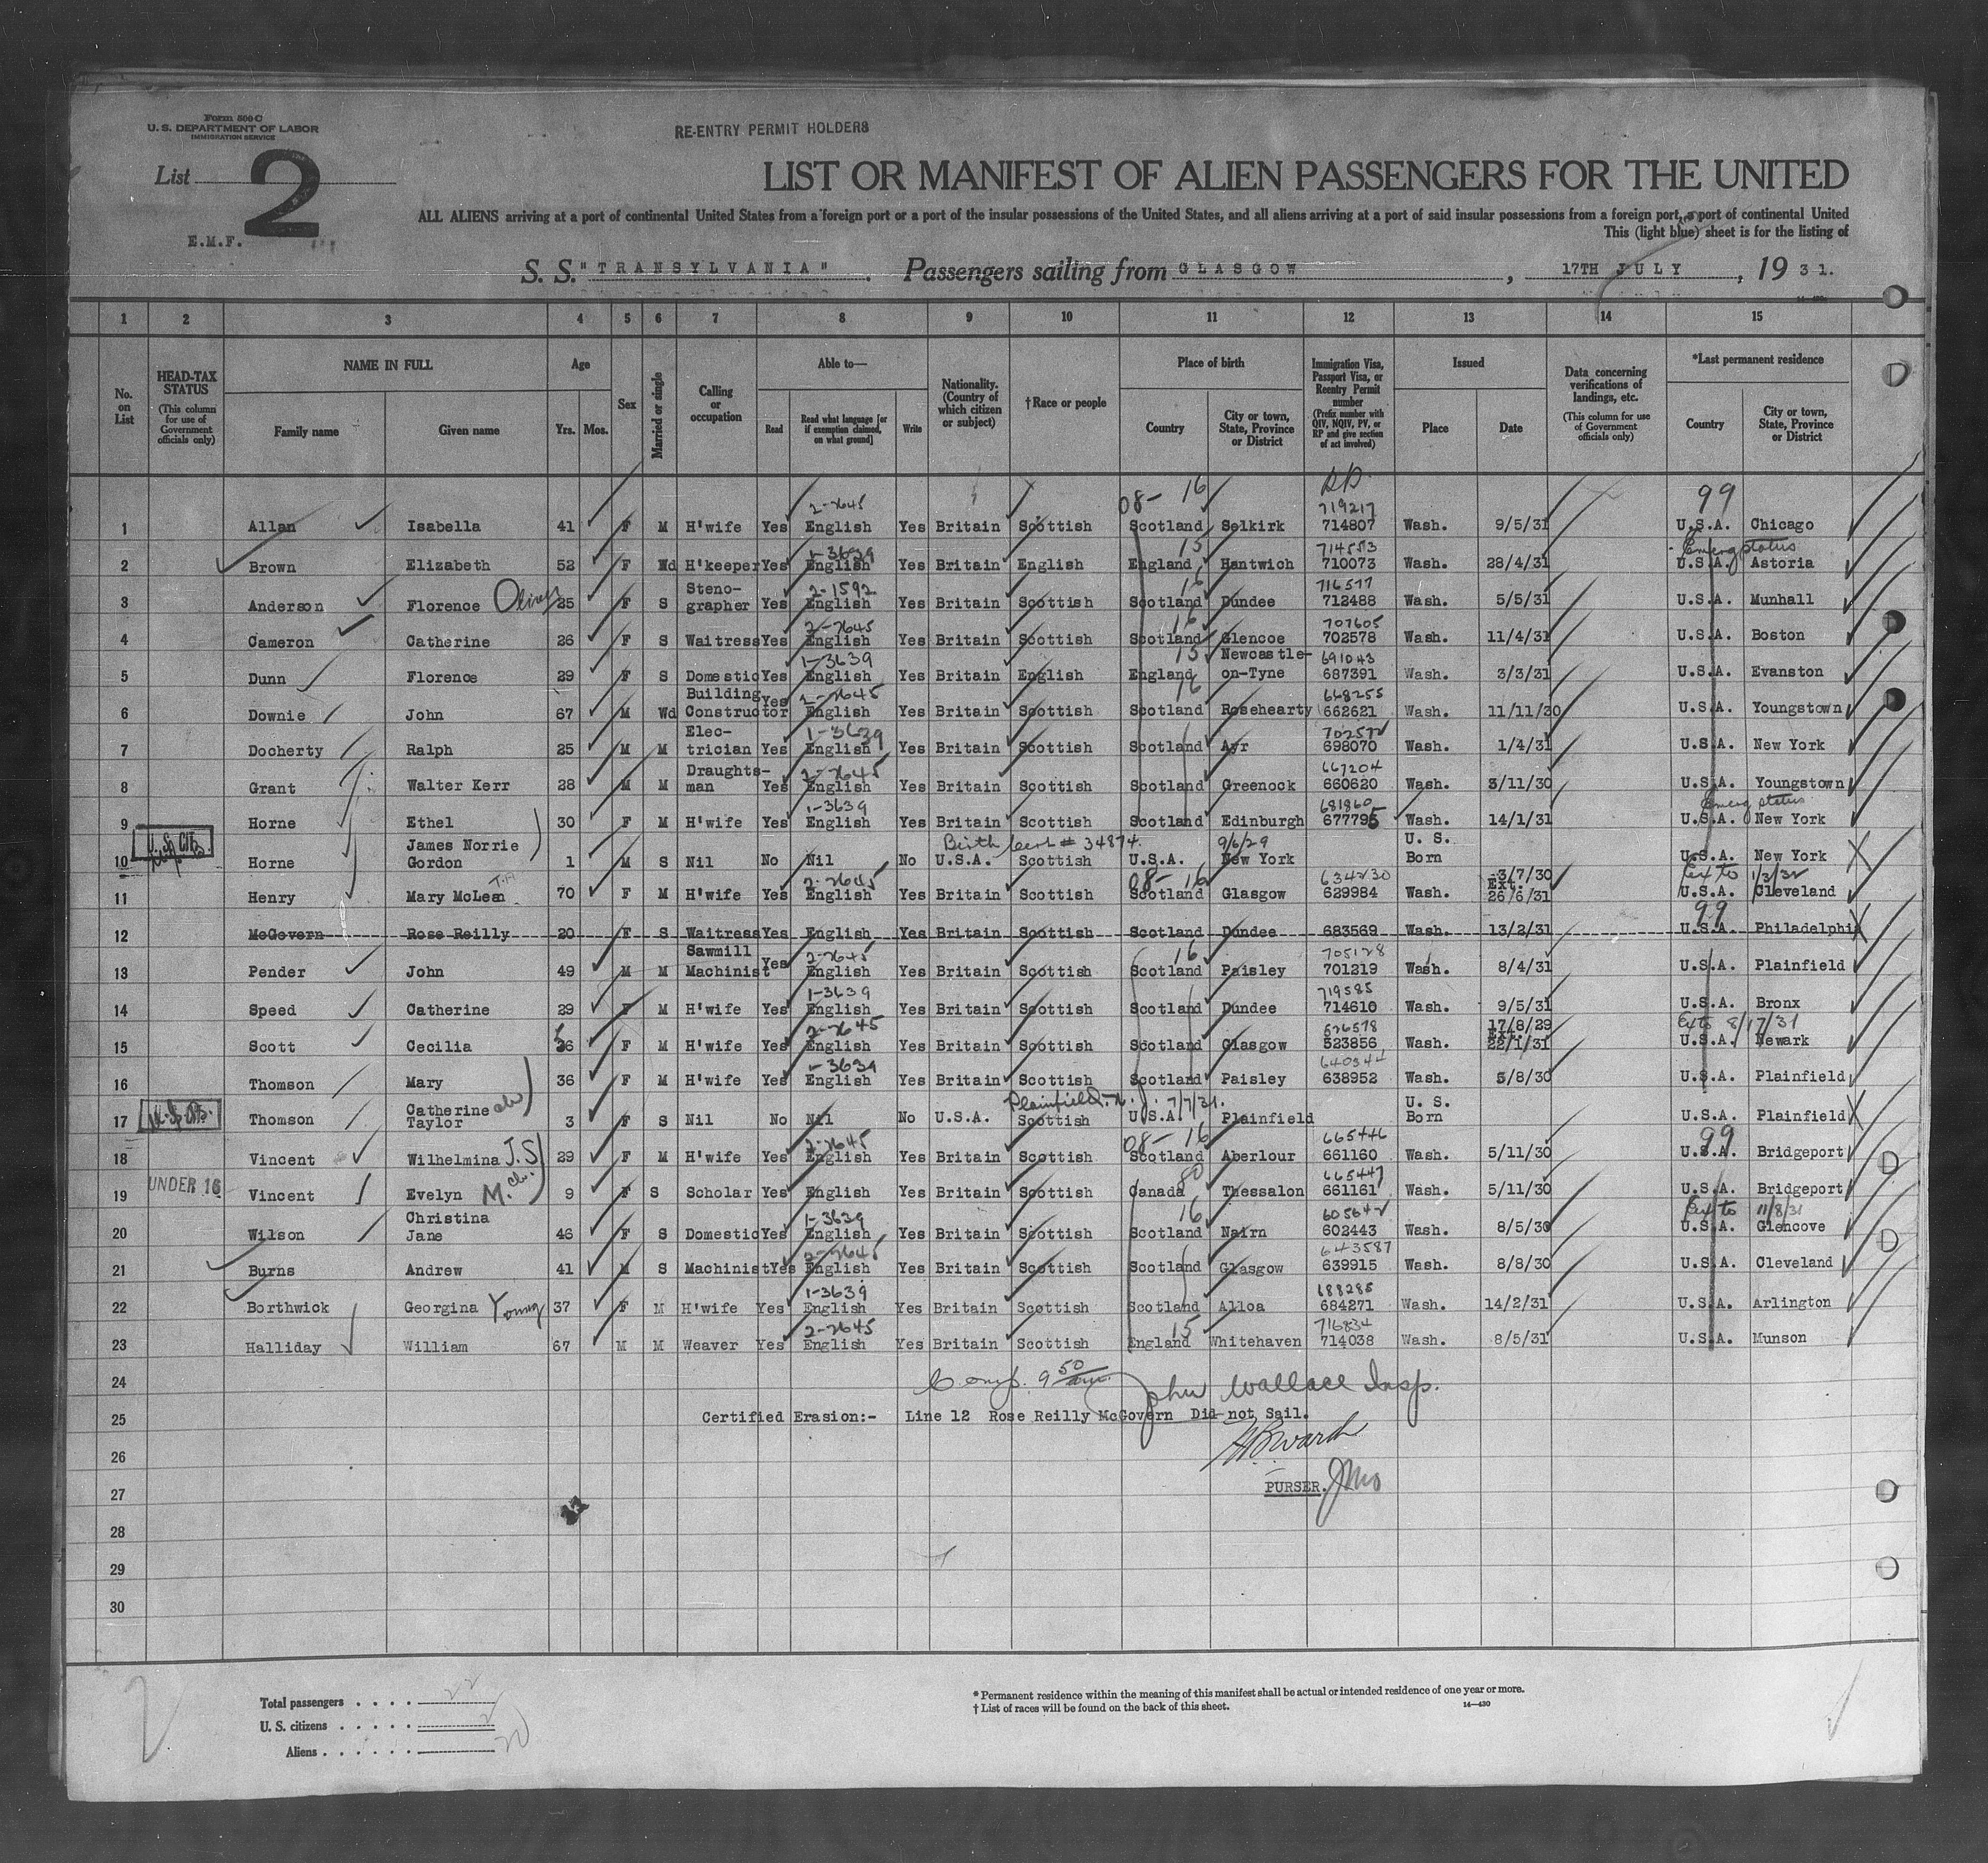 Form 500-C
U. S. DEPARTMENT OF LABOR
IMMIGRATION SERVICE
RE-ENTRY PERMIT HOLDERS
List 2
LIST OR MANIFEST OF ALIEN PASSENGERS FOR THE UNITED
ALL ALIENS arriving at a port of continental United States from a foreign port or a port of the insular possessions of the United States, and all aliens arriving at a port of said insular possessions from a foreign port, a port of continental United
This (light blue) sheet is for the listing of
E.M.F.
S. S. "TRANSYLVANIA". Passengers sailing from GLASGOW, 17TH JULY, 1931.
1 2 3 4 5 6 7 8 9 10 11 12 13 14 15
No. on List
HEAD-TAX STATUS
(This column for use of Government officials only)
NAME IN FULL
Family name Given name
Age
Yrs. Mos.
Sex
Married or single
Calling or occupation
Able to—
Read Read what language [or if exemption claimed, on what ground] Write
Nationality. (Country of which citizen or subject)
†Race or people
Place of birth
Country City or town, State, Province or District
Immigration Visa, Passport Visa, or Reentry Permit number
(Prefix number with QIV, NQIV, PV, or RP and give section of act involved)
Issued
Place Date
Data concerning verifications of landings, etc.
(This column for use of Government officials only)
*Last permanent residence
Country City or town, State, Province or District
2-2645 08- 16 719217 99
1 Allan Isabella 41 F M H'wife Yes English Yes Britain Scottish Scotland Selkirk 714807 Wash. 9/5/31 U.S.A. Chicago
1-3639 15 714553 Emerg status
2 Brown Elizabeth 52 F Wd H'keeper Yes English Yes Britain English England Nantwich 710073 Wash. 28/4/31 U.S.A. Astoria
2-1592 16 716577
3 Anderson Florence Oliver 25 F S Steno-grapher Yes English Yes Britain Scottish Scotland Dundee 712488 Wash. 5/5/31 U.S.A. Munhall
2-2645 16 707605
4 Cameron Catherine 26 F S Waitress Yes English Yes Britain Scottish Scotland Glencoe 702578 Wash. 11/4/31 U.S.A. Boston
1-3639 15 691043
5 Dunn Florence 29 F S Domestic Yes English Yes Britain English England Newcastle-on-Tyne 687391 Wash. 3/3/31 U.S.A. Evanston
2-2645 16 668255
6 Downie John 67 M Wd Building Constructor Yes English Yes Britain Scottish Scotland Rosehearty 662621 Wash. 11/11/30 U.S.A. Youngstown
1-3639 702572
7 Docherty Ralph 25 M M Elec-trician Yes English Yes Britain Scottish Scotland Ayr 698070 Wash. 1/4/31 U.S.A. New York
2-2645 667204
8 Grant Walter Kerr 28 M M Draughts-man Yes English Yes Britain Scottish Scotland Greenock 660620 Wash. 3/11/30 U.S.A. Youngstown
1-3639 681860 Emerg status
9 Horne Ethel 30 F M H'wife Yes English Yes Britain Scottish Scotland Edinburgh 677795 Wash. 14/1/31 U.S.A. New York
U.S. Cit. Birth Cert # 34874. 9/6/29
10 Horne James Norrie Gordon 1 M S Nil No Nil No U.S.A. Scottish U.S.A. New York U. S. Born U.S.A. New York
2-2645 08- 16 634230 Ext to 1/3/32
11 Henry Mary McLean 70 F M H'wife Yes English Yes Britain Scottish Scotland Glasgow 629984 Wash. 3/7/30 Ext. 26/6/31 U.S.A. Cleveland
99
12 McGovern Rose Reilly 20 F S Waitress Yes English Yes Britain Scottish Scotland Dundee 683569 Wash. 13/2/31 U.S.A. Philadelphia
2-2645 16 705128
13 Pender John 49 M M Sawmill Machinist Yes English Yes Britain Scottish Scotland Paisley 701219 Wash. 8/4/31 U.S.A. Plainfield
1-3639 719585
14 Speed Catherine 29 F M H'wife Yes English Yes Britain Scottish Scotland Dundee 714610 Wash. 9/5/31 U.S.A. Bronx
2-2645 526578 Ext to 8/17/31
15 Scott Cecilia 36 F M H'wife Yes English Yes Britain Scottish Scotland Glasgow 523856 Wash. 17/8/29 Ext. 22/1/31 U.S.A. Newark
1-3639 640344
16 Thomson Mary 36 F M H'wife Yes English Yes Britain Scottish Scotland Paisley 638952 Wash. 5/8/30 U.S.A. Plainfield
U.S. Cit. Plainfield, N.J. 7/7/31.
17 Thomson Catherine Taylor 3 F S Nil No Nil No U.S.A. Scottish U.S.A. Plainfield U. S. Born U.S.A. Plainfield
2-2645 08- 16 665446 99
18 Vincent Wilhelmina J.S. 29 F M H'wife Yes English Yes Britain Scottish Scotland Aberlour 661160 Wash. 5/11/30 U.S.A. Bridgeport
80 665447
19 UNDER 16 Vincent Evelyn M. 9 F S Scholar Yes English Yes Britain Scottish Canada Thessalon 661161 Wash. 5/11/30 U.S.A. Bridgeport
1-3639 16 605642 Ext to 11/8/31
20 Wilson Christina Jane 46 F S Domestic Yes English Yes Britain Scottish Scotland Nairn 602443 Wash. 8/5/30 U.S.A. Glencove
2-2645 643587
21 Burns Andrew 41 M S Machinist Yes English Yes Britain Scottish Scotland Glasgow 639915 Wash. 8/8/30 U.S.A. Cleveland
1-3639 688285
22 Borthwick Georgina Young 37 F M H'wife Yes English Yes Britain Scottish Scotland Alloa 684271 Wash. 14/2/31 U.S.A. Arlington
2-2645 15 716834
23 Halliday William 67 M M Weaver Yes English Yes Britain Scottish England Whitehaven 714038 Wash. 8/5/31 U.S.A. Munson
24 Comp. 9 50 am John Wallace Insp.
25 Certified Erasion:- Line 12 Rose Reilly McGovern Did not Sail.
26
27 PURSER.
28
29
30
Total passengers . . . . 22
U. S. citizens . . . . . 2
Aliens . . . . . . 20
* Permanent residence within the meaning of this manifest shall be actual or intended residence of one year or more.
† List of races will be found on the back of this sheet.
14—430